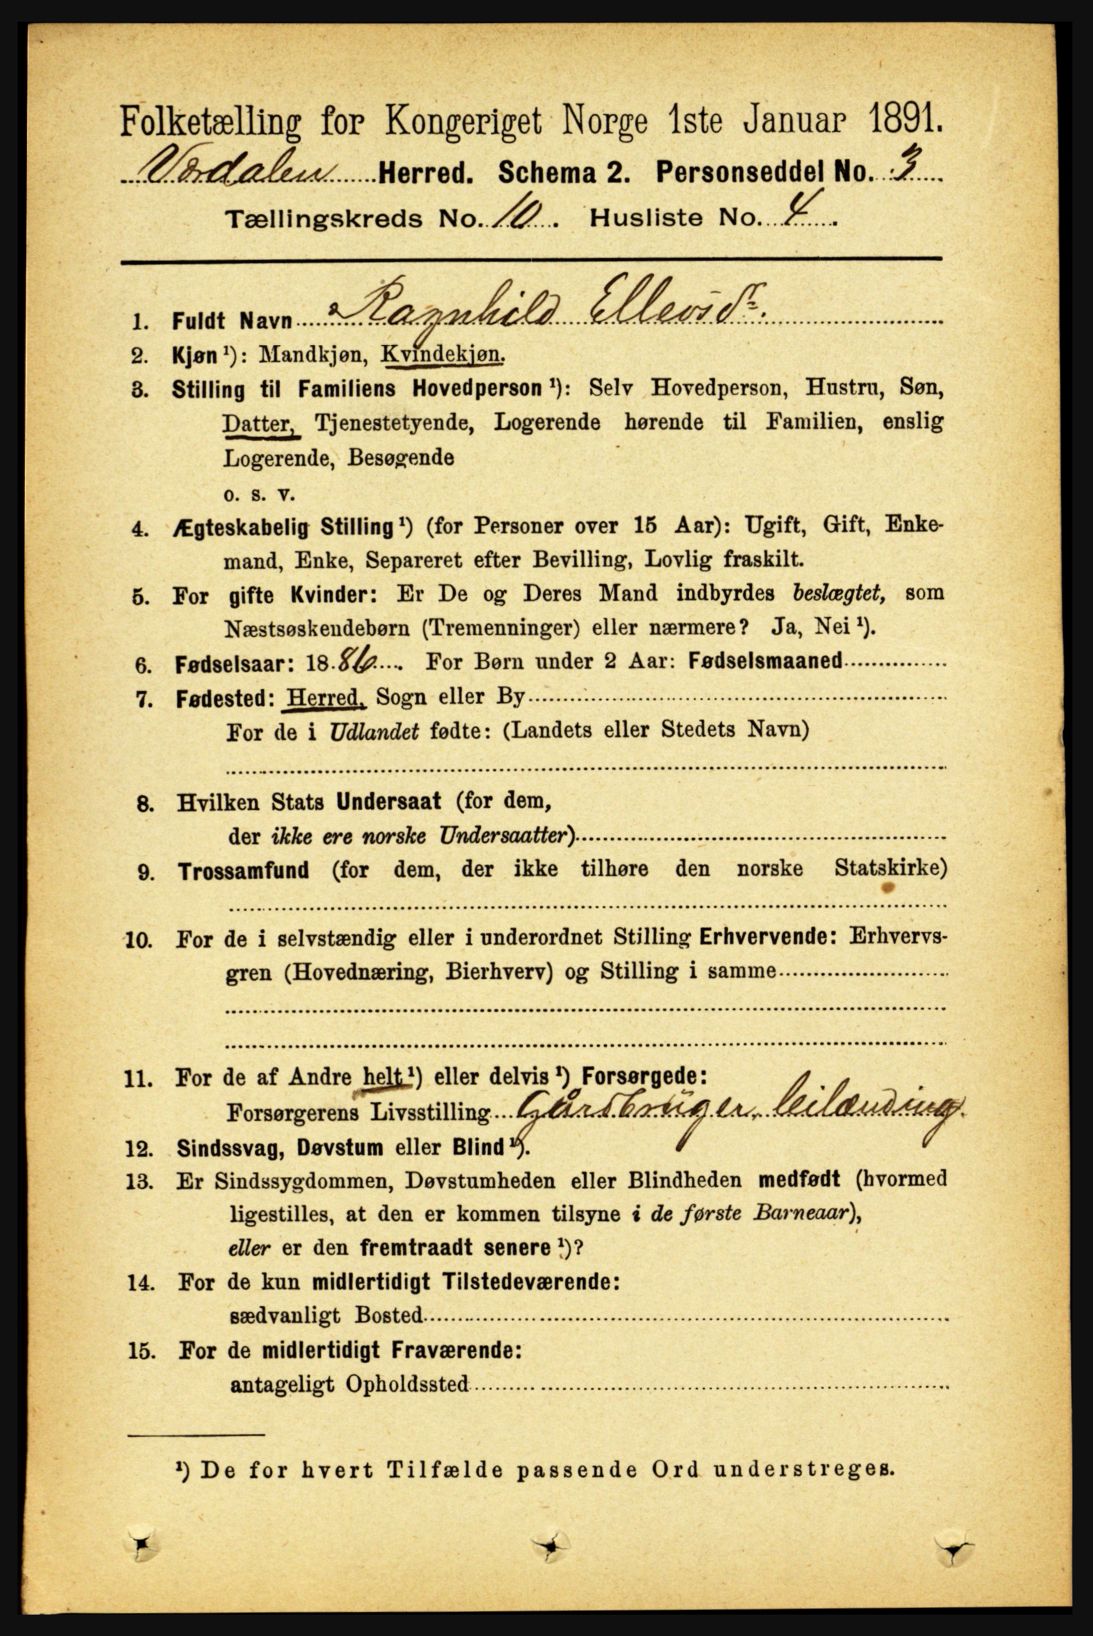 Folketælling for Kongeriget Norge 1ste Januar 1891.
Værdalen Herred. Schema 2. Personseddel No. 3
Tællingskreds No. 10. Husliste No. 4.
1. Fuldt Navn Ragnhild Ellevsdr.
2. Kjøn ¹): Mandkjøn, Kvindekjøn.
3. Stilling til Familiens Hovedperson ¹): Selv Hovedperson, Hustru, Søn,
Datter, Tjenestetyende, Logerende hørende til Familien, enslig
Logerende, Besøgende
o. s. v.
4. Ægteskabelig Stilling ¹) (for Personer over 15 Aar): Ugift, Gift, Enke-
mand, Enke, Separeret efter Bevilling, Lovlig fraskilt.
5. For gifte Kvinder: Er De og Deres Mand indbyrdes beslægtet, som
Næstsøskendebørn (Tremenninger) eller nærmere? Ja, Nei ¹).
6. Fødselsaar: 1886. For Børn under 2 Aar: Fødselsmaaned
7. Fødested: Herred, Sogn eller By
For de i Udlandet fødte: (Landets eller Stedets Navn)
8. Hvilken Stats Undersaat (for dem,
der ikke ere norske Undersaatter)
9. Trossamfund (for dem, der ikke tilhøre den norske Statskirke)
10. For de i selvstændig eller i underordnet Stilling Erhvervende: Erhvervs-
gren (Hovednæring, Bierhverv) og Stilling i samme
11. For de af Andre helt ¹) eller delvis ¹) Forsørgede:
Forsørgerens Livsstilling Gårdbruger, leilænding
12. Sindssvag, Døvstum eller Blind ¹).
13. Er Sindssygdommen, Døvstumheden eller Blindheden medfødt (hvormed
ligestilles, at den er kommen tilsyne i de første Barneaar),
eller er den fremtraadt senere ¹)?
14. For de kun midlertidigt Tilstedeværende:
sædvanligt Bosted
15. For de midlertidigt Fraværende:
antageligt Opholdssted
¹) De for hvert Tilfælde passende Ord understreges.